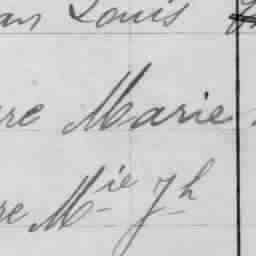 an Louis
re Marie
re M^ie Jh